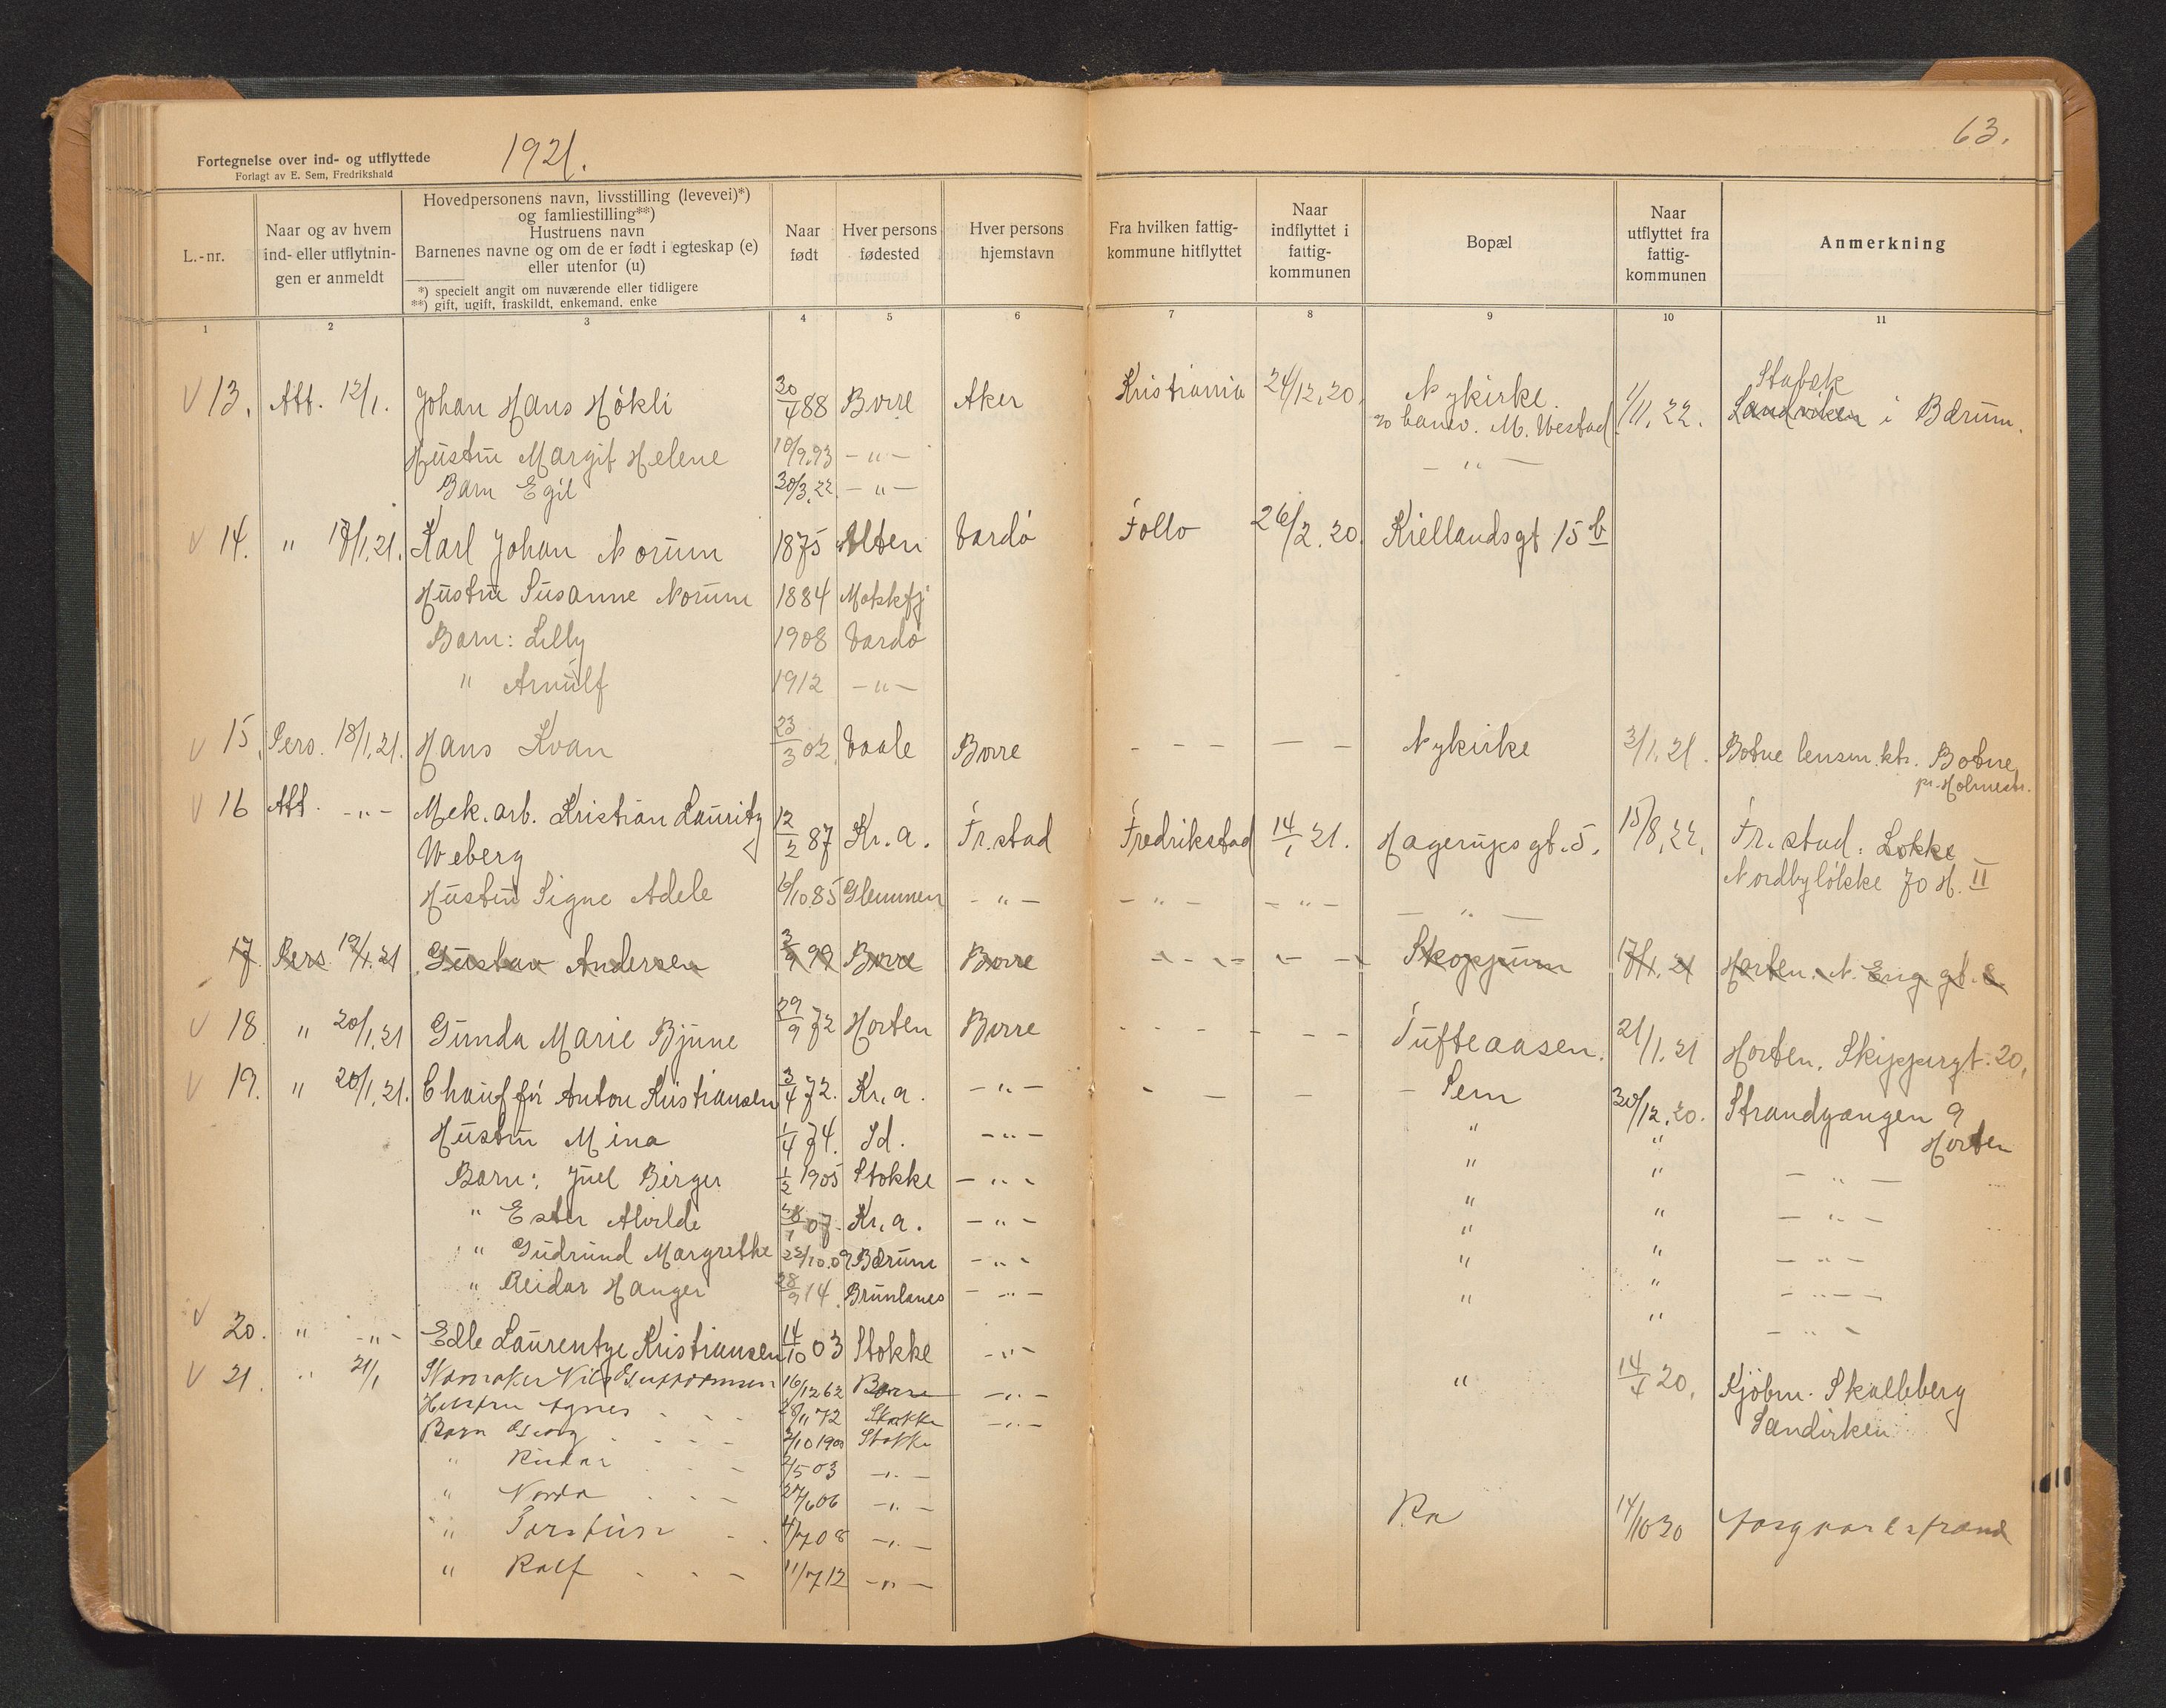 63.
Fortegnelse over ind- og utflyttede
Forlagt av E. Sem, Fredrikshald
1921.
L.-nr.
Naar og av hvem ind- eller utflytnin- gen er anmeldt
Hovedpersonens navn, livsstilling (levevei)*)
og famliestilling**)
Hustruens navn
Barnenes navne og om de er født i egteskap (e)
eller utenfor (u)
*) specielt angit om nuværende eller tidligere
**) gift, ugift, fraskildt, enkemand, enke
Naar født
Hver persons fødested
Hver persons hjemstavn
Fra hvilken fattig- kommune hitflyttet
Naar indflyttet i fattig- kommunen
Bopæl
Naar utflyttet fra fattig- kommunen
Anmerkning
1 2 3 4 5 6 7 8 9 10 11
Stabæk
13. Att. 12/1. Johan Hans Høkli 30/4 88 Borre Aker Kristiania 24/12.20. Nykirke. 1/11.22. Sandviken i Bærum.
M. Westad
Hustru Margit Helene 10/9.93 -"- -"-
Barn Egil 30/3.22 -"-
14. " 17/1.21. Karl Johan Norum 1875 Alten Vardø Follo 26/2.20. Kiellandsgt 15 b
Hustru Susanne Norum 1884
Barn: Lilly 1908 Vardø
" Arnulf 1912 -"-
15. Pers. 18/1.21. Hans Kvan 23/3 02. Vaale Borre - - - - - Nykirke 3/1.21. Botne lensm.ktr. Botne
pr. Holmestr.
16 Att. -"- Mek. arb. Kristian Lauritz 12/2 87 Kr.a. Fr.stad Fredrikstad 14/1 21. Hagerupsgt. 5. 15/8.22. Fr.stad. Løkke
Weberg Nordbyløkke 70 H. II
Hustru Signe Adele 6/10 85 Glemmen -"- -"- -"- -"-
17. Pers 19/1.21 Gustav Andersen 3/9 99 Borre Borre - - - - - Skoppum 17/1.21 Horten. N. Enggt. 8.
18 " 20/1.21 Gunda Marie Bjune 29/9 72 Horten Borre - - - - - Tufteaasen. 21/1.21 Horten. Skippergt. 20.
19. " 20/1.21. Chauffør Anton Kristiansen 3/4 72. Kr.a. -"- - - - - Sem 30/12.20. Strandgangen 9
Horten
Hustru Mina 1/4 74. Id. -"- " "
Barn: Juel Birger 1/2 1905 Stokke -"- " " -"-
" Ester Alvilde 28/1 07. Kr.a. -"- " " -"-
" Gudrund Margrethe 22/10.09 Bærum -"- " " -"-
" Reidar Hanger 28/9 14. Brunlanes -"- " " -"-
20. " -"- Edle Laurentze Kristiansen 14/10 03 Stokke -"- " " -"-
21. " 21/1 Nils Guttormsen 16/12 62 Borre -"- " 14/4 20. Kjøbm. Skalleberg
Hustru Agnes 28/11 72 Stokke -"- Sandviken
Barn Georg 2/10 1900 Stokke
" Reidar 2/5 03 -"-
" Norda 27/6 06 -"-
" 4/7 08 -"- Ra 14/10 20 Aasgaardstrand
" Ralf 11/7 12 -"-